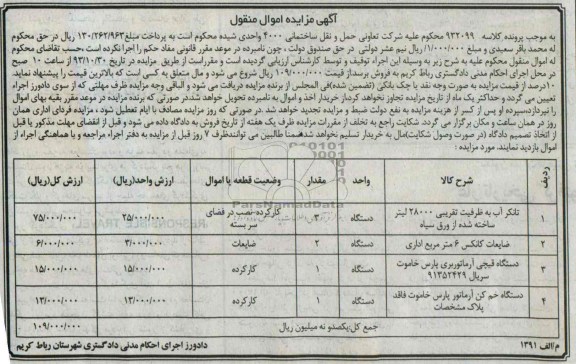 آگهی مزایده اموال منقول
به موجب پرونده کلاسه ۹۲۲۰۹۹ محکوم علیه شرکت تعاونی حمل و نقل ساختمانی ۴۰۰۰ واحدی شیده محکوم است به پرداخت مبلغ ۱۳۰/۲۶۲/۹۶۳ ریال در حق محکوم
له محمد باقر سعیدی و مبلغ ۱/۰۰۰/۰۰۰ ریال نیم عشر دولتی در حق صندوق دولت ، چون نامبرده در موعد مقرر قانونی مفاد حکم را اجرا نکرده است ،حسب تقاضای محکوم
له اموال منقول محکوم علیه به شرح زیر به وسیله این اجراء توقیف و توسط کارشناس ارزیابی گردیده است و مقرراست از طریق مزایده در تاریخ ۹۳/۱۰/۳۰ از ساعت ۱۰ صبح
در محل اجرای احکام مدنی دادگستری رباط کریم به فروش برسد.از قیمت ۱۰۹/۰۰۰/۰۰۰ ریال شروع می شود و مال متعلق به کسی است که بالاترین قیمت را پیشنهاد نماید.
۱۰درصد از قیمت مزایده به صورت وجه نقد یا چک بانکی (تضمین شده)فی المجلس از برنده مزایده دریافت می شود و الباقی وجه مزایده ظرف مهلتی که از سوی دادورز اجراء
تعیین می گردد و حداکثر یک ماه از تاریخ مزایده تجاوز نخواهد کرد،از خریدار اخذ و اموال به نامبرده تحویل خواهد شد.در صورتی که برنده مزایده در موعد مقرر بقیه بهای اموال
را نپردازد،سپرده او پس از کسر از هزینه مزایده به نفع دولت ضبط و مزایده تجدید خواهد شد .در صورتی که روز مزایده مصادف با ایام تعطیل شود ، مزایده فردای اداری همان
روز در همان ساعت و مکان برگزار می گردد. شکایت راجع به تخلف از مقررات مزایده ظرف یک هفته از تاریخ فروش به دادگاه داده می شود و قبل از انقضای مهلت مذکور یا قبل
از اتخاذ تصمیم دادگاه (در صورت وصول شکایت)مال به خریدار تسلیم نخواهد شد.ضمنا طالبین می توانندظرف ۷ روز قبل از مزایده به دفتر اجراء مراجعه و با هماهنگی اجراء از
اموال بازدید نمایند. مورد مزایده :
ردیف شرح کالا واحد مقدار وضعیت قطعه یا اموال ارزش واحد(ریال) ارزش کل(ریال)
۱ تانکر آب به ظرفیت تقریبی ۲۸۰۰۰ لیتر ساخته شده از ورق سیاه دستگاه ۳ کارکرده-نصب در فضای سر بسته ۲۵/۰۰۰/۰۰۰ ۷۵/۰۰۰/۰۰۰
۲ ضایعات کانکس ۶ متر مربع اداری دستگاه ۲ ضایعات ۳/۰۰۰/۰۰۰ ۶/۰۰۰/۰۰۰
۳ دستگاه قیچی آرماتوربری پارس خاموت سریال ۹۱۳۵۲۴۲۹ دستگاه ۱ کارکرده ۱۵/۰۰۰/۰۰۰ ۱۵/۰۰۰/۰۰۰
۴ دستگاه خم کن آرماتور پارس خاموت فاقد پلاک مشخصات دستگاه ۱ کارکرده ۱۳/۰۰۰/۰۰۰ ۱۳/۰۰۰/۰۰۰
جمع کل:یکصدو نه میلیون ریال ۱۰۹/۰۰۰/۰۰۰
م/الف ۱۳۹۱ دادورز اجرای احکام مدنی دادگستری شهرستان رباط کریم